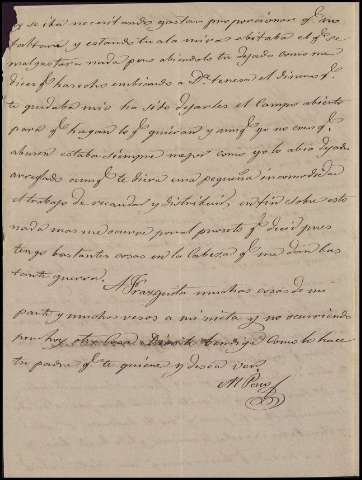 y se iba necesitando gastar proporcionar qe no
faltara, y estando tu ala mira abitaba el qe se
malgastara nada pues abiendolo tu dejado como me
dices qe has echo embiando a Dn el dinero qe
te quedaba mio ha sido dejarles el Campo abierto
para qe hagan lo qe quieran y aunqe yo no creo qe
ahora estaba siempre mejor como yo lo abia dejado
arreglado aunqe te diera una pequeña incomodidad
el trabajo de recaudar y distribuir, en fin sobre esto
nada mas me ocurre por el pronto qe decir pues
tengo bastantes cosas en la Cabeza qe me dan bas
tante guerra.
A Frasquita muchas cosas de mi
parte y muchos vesos a mi nieta y no ocurriendo
por hoy otra Cosa como lo hace
tu padre qe te quiere y desea ver.
M Peus